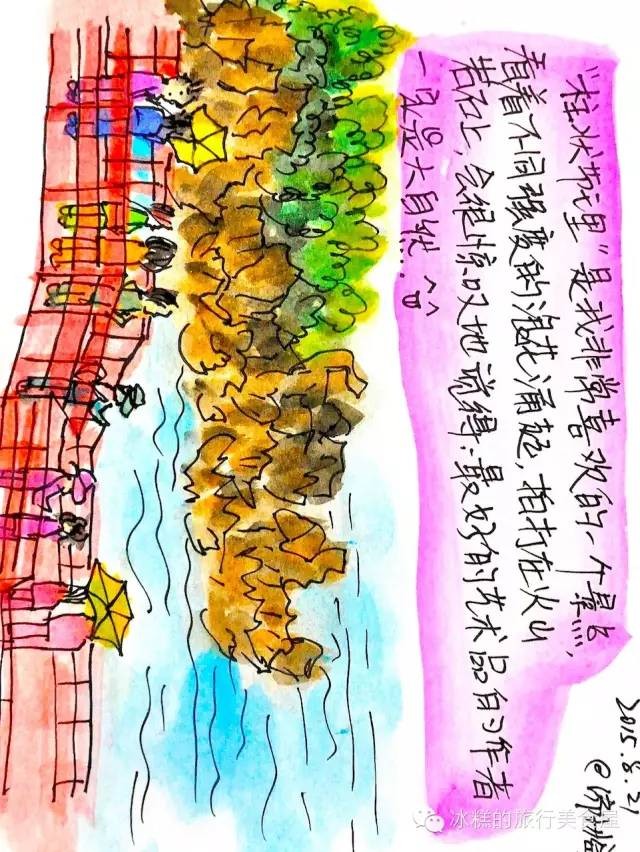 "柱状节理"是我非常喜欢的一个景点,
看着不同强度的浪花涌起,拍打在火山
岩石上,会很惊叹地觉得:最好的艺术品的作者
一定是大自然...^o^
2015.8.21
@济州
冰糕的旅行美食屋